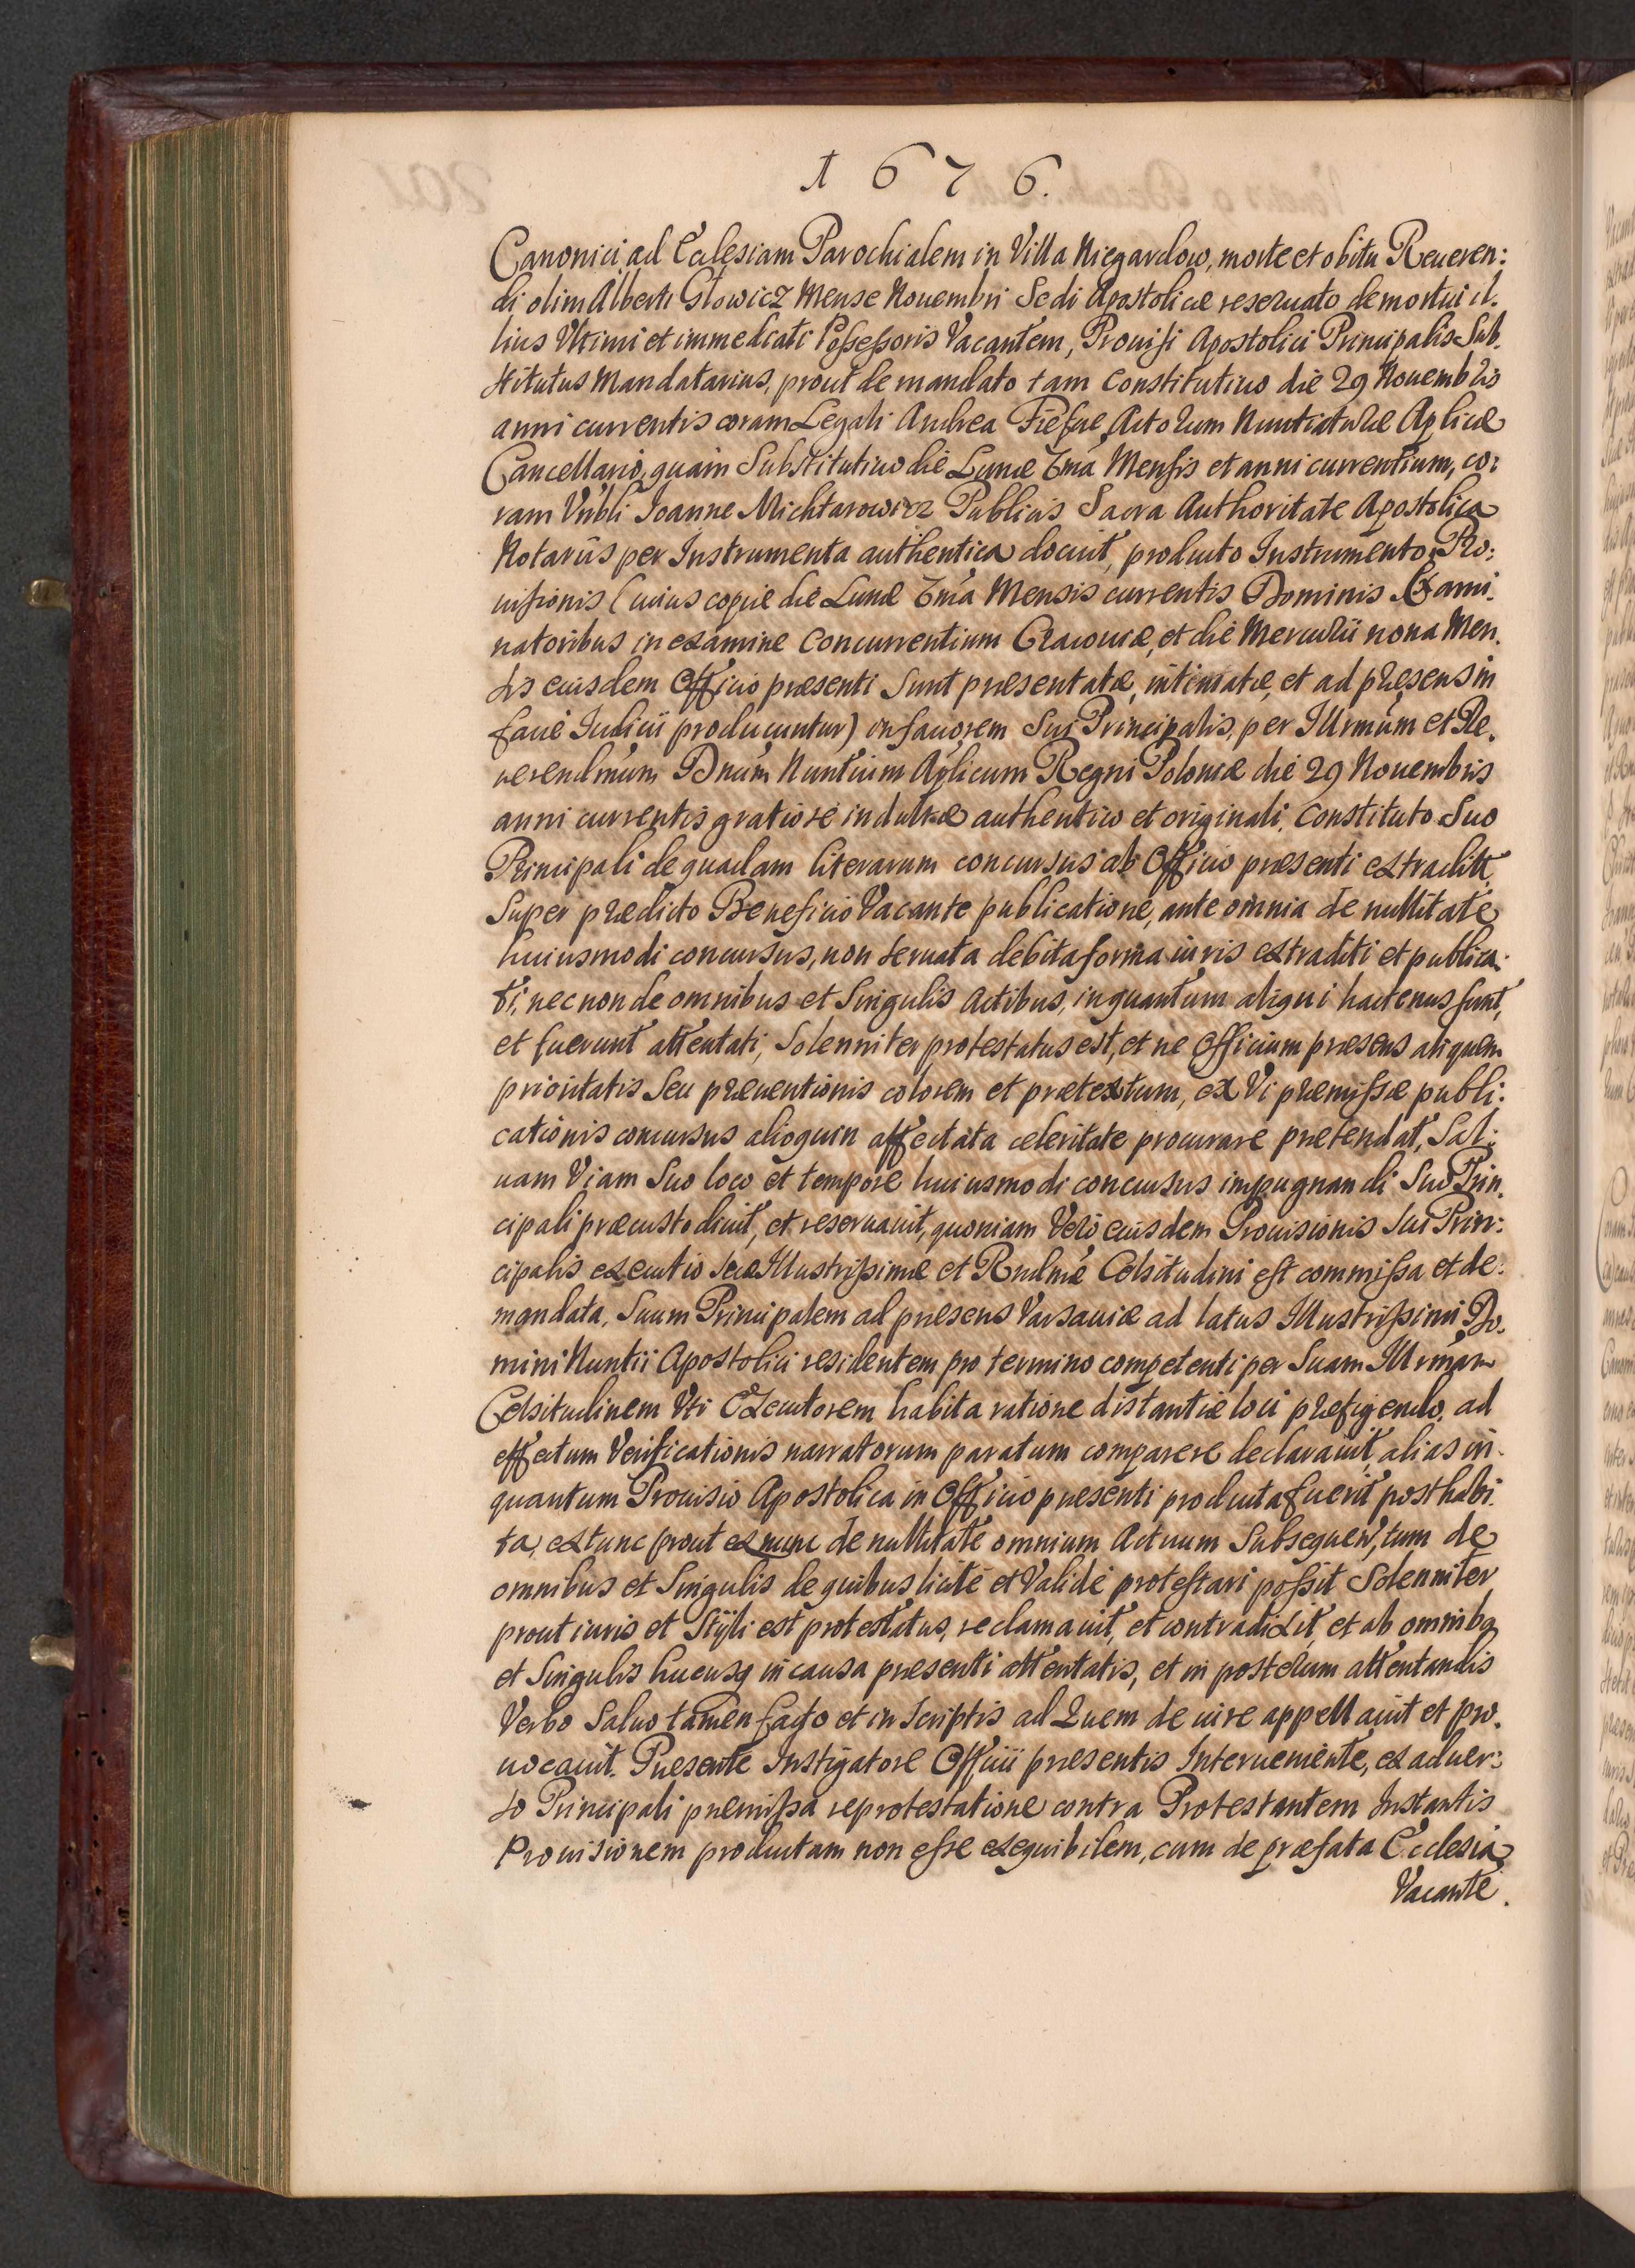 1676.
Canonici ad Ecclesiam Parochialem in Villa Niegardow, morte et obitu Reueren:
di olim Alberti Głowicz Mense Nouembri Sedi Apostolicæ reseruato demortui il.
lius Vltimi et immediati Possessoris Vacantem, Prouisi Apostolici Principalis Sub.
stitutus Mandatarius, prout de mandato tam Constitutiuo die 29 Nouembris
anni currentis coram Legali Andrea Actorum Nuntiaturæ Aplicæ
Cancellario, quam Substitutiuo die Lunæ 7ma Mensis et anni currentium, co:
ram Vnbli Joanne Michtarowicz Publicis Sacra Authoritate Apostolica
Notariis per Instrumenta authentica docuit, producto Instrumento Pro:
uisionis (cuius copiæ die Lunæ 7ma Mensis currentis Dominis Exami:
natoribus in examine Concurrentium Cracouiæ, et die Mercurii nona Men.
sis eiusdem Officio præsenti sunt præsentatæ, intimatæ, et ad præsens in
facie Iudicii producuntur) in fauorem Sui Principalis, per Illrmum et Re.
uerendmum Dnum Nuntium Aplicum Regni Poloniæ die 29 Nouembris
anni currentis gratiose indultæ authentico et originali, Constituto Suo
Principali de quadam literarum concursus ab Officio præsenti extradit.
Super prædicto Beneficio Vacante publicatione, ante omnia de nullitate
huiusmodi concursus, non seruata debita forma iuris extraditi et publica:
ti, nec non de omnibus et Singulis Actibus, inquantum aliqui hactenus sunt,
et fuerunt attentati, Solenniter protestatus est, et ne Officium præsens aliquem
prioritatis Seu præuentionis colorem et prætextum, ex Vi præmissæ publi:
cationis concursus alioquin affectata celeritate procurare prætendat, Sal:
uam Viam Suo loco et tempore huiusmodi concursus impugnandi Suo Prin.
cipali præcustodiuit, et reseruauit, quoniam Vero eiusdem Prouisionis Sui Prin:
cipalis executio suæ Illustrissimæ et Rndmæ Celsitudini est commissa et de:
mandata, Suum Principalem ad præsens Varsauiæ ad latus Illustrissimi Do.
mini Nuntii Apostolici residentem pro termino competenti per Suam Illrmam
Celsitudinem Vti Executorem habita ratione distantiæ loci præfigendo, ad
effectum Verificationis narratorum paratum comparere declarauit, alias in.
quantum Prouisio Apostolica in Officio præsenti producta fuerit posthabi.
ta, extunc prout ex nunc de nullitate omnium Actuum Subsequentium de
omnibus et Singulis de quibus licite et Valide protestari possit Solenniter
prout iuris et Styli est protestatus, reclamauit, et contradixit, et ab omnibq
et Singulis hucusq in causa præsenti attentatis, et in posterum attentandis
Verbo Saluo tamen facto et in Scriptis ad Quem de iure appellauit et pro.
uocauit. Præsente Instigatore Officii præsentis Interueniente, ex aduer:
so Principali præmissa reprotestatione contra Protestantem Instantis
Prouisionem productam non esse exequibilem, cum de præfata Ecclesia
Vacante.